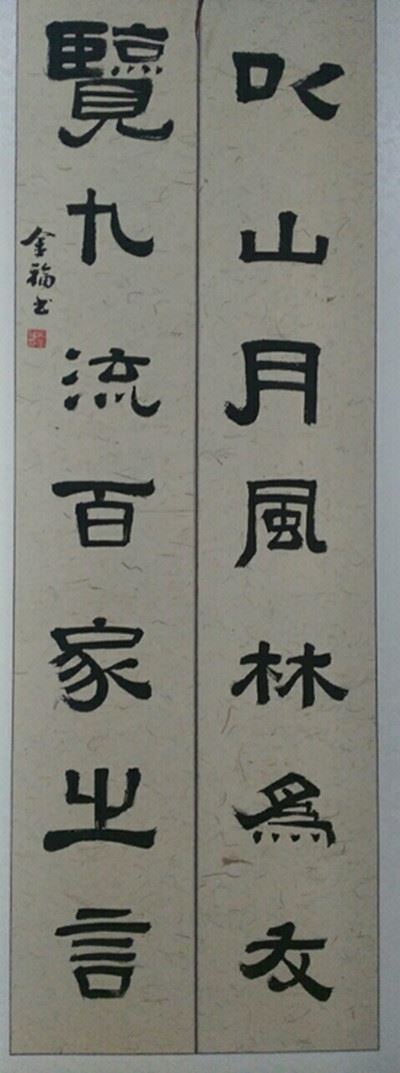 以山月風林為友
覽九流百家之言
金福书